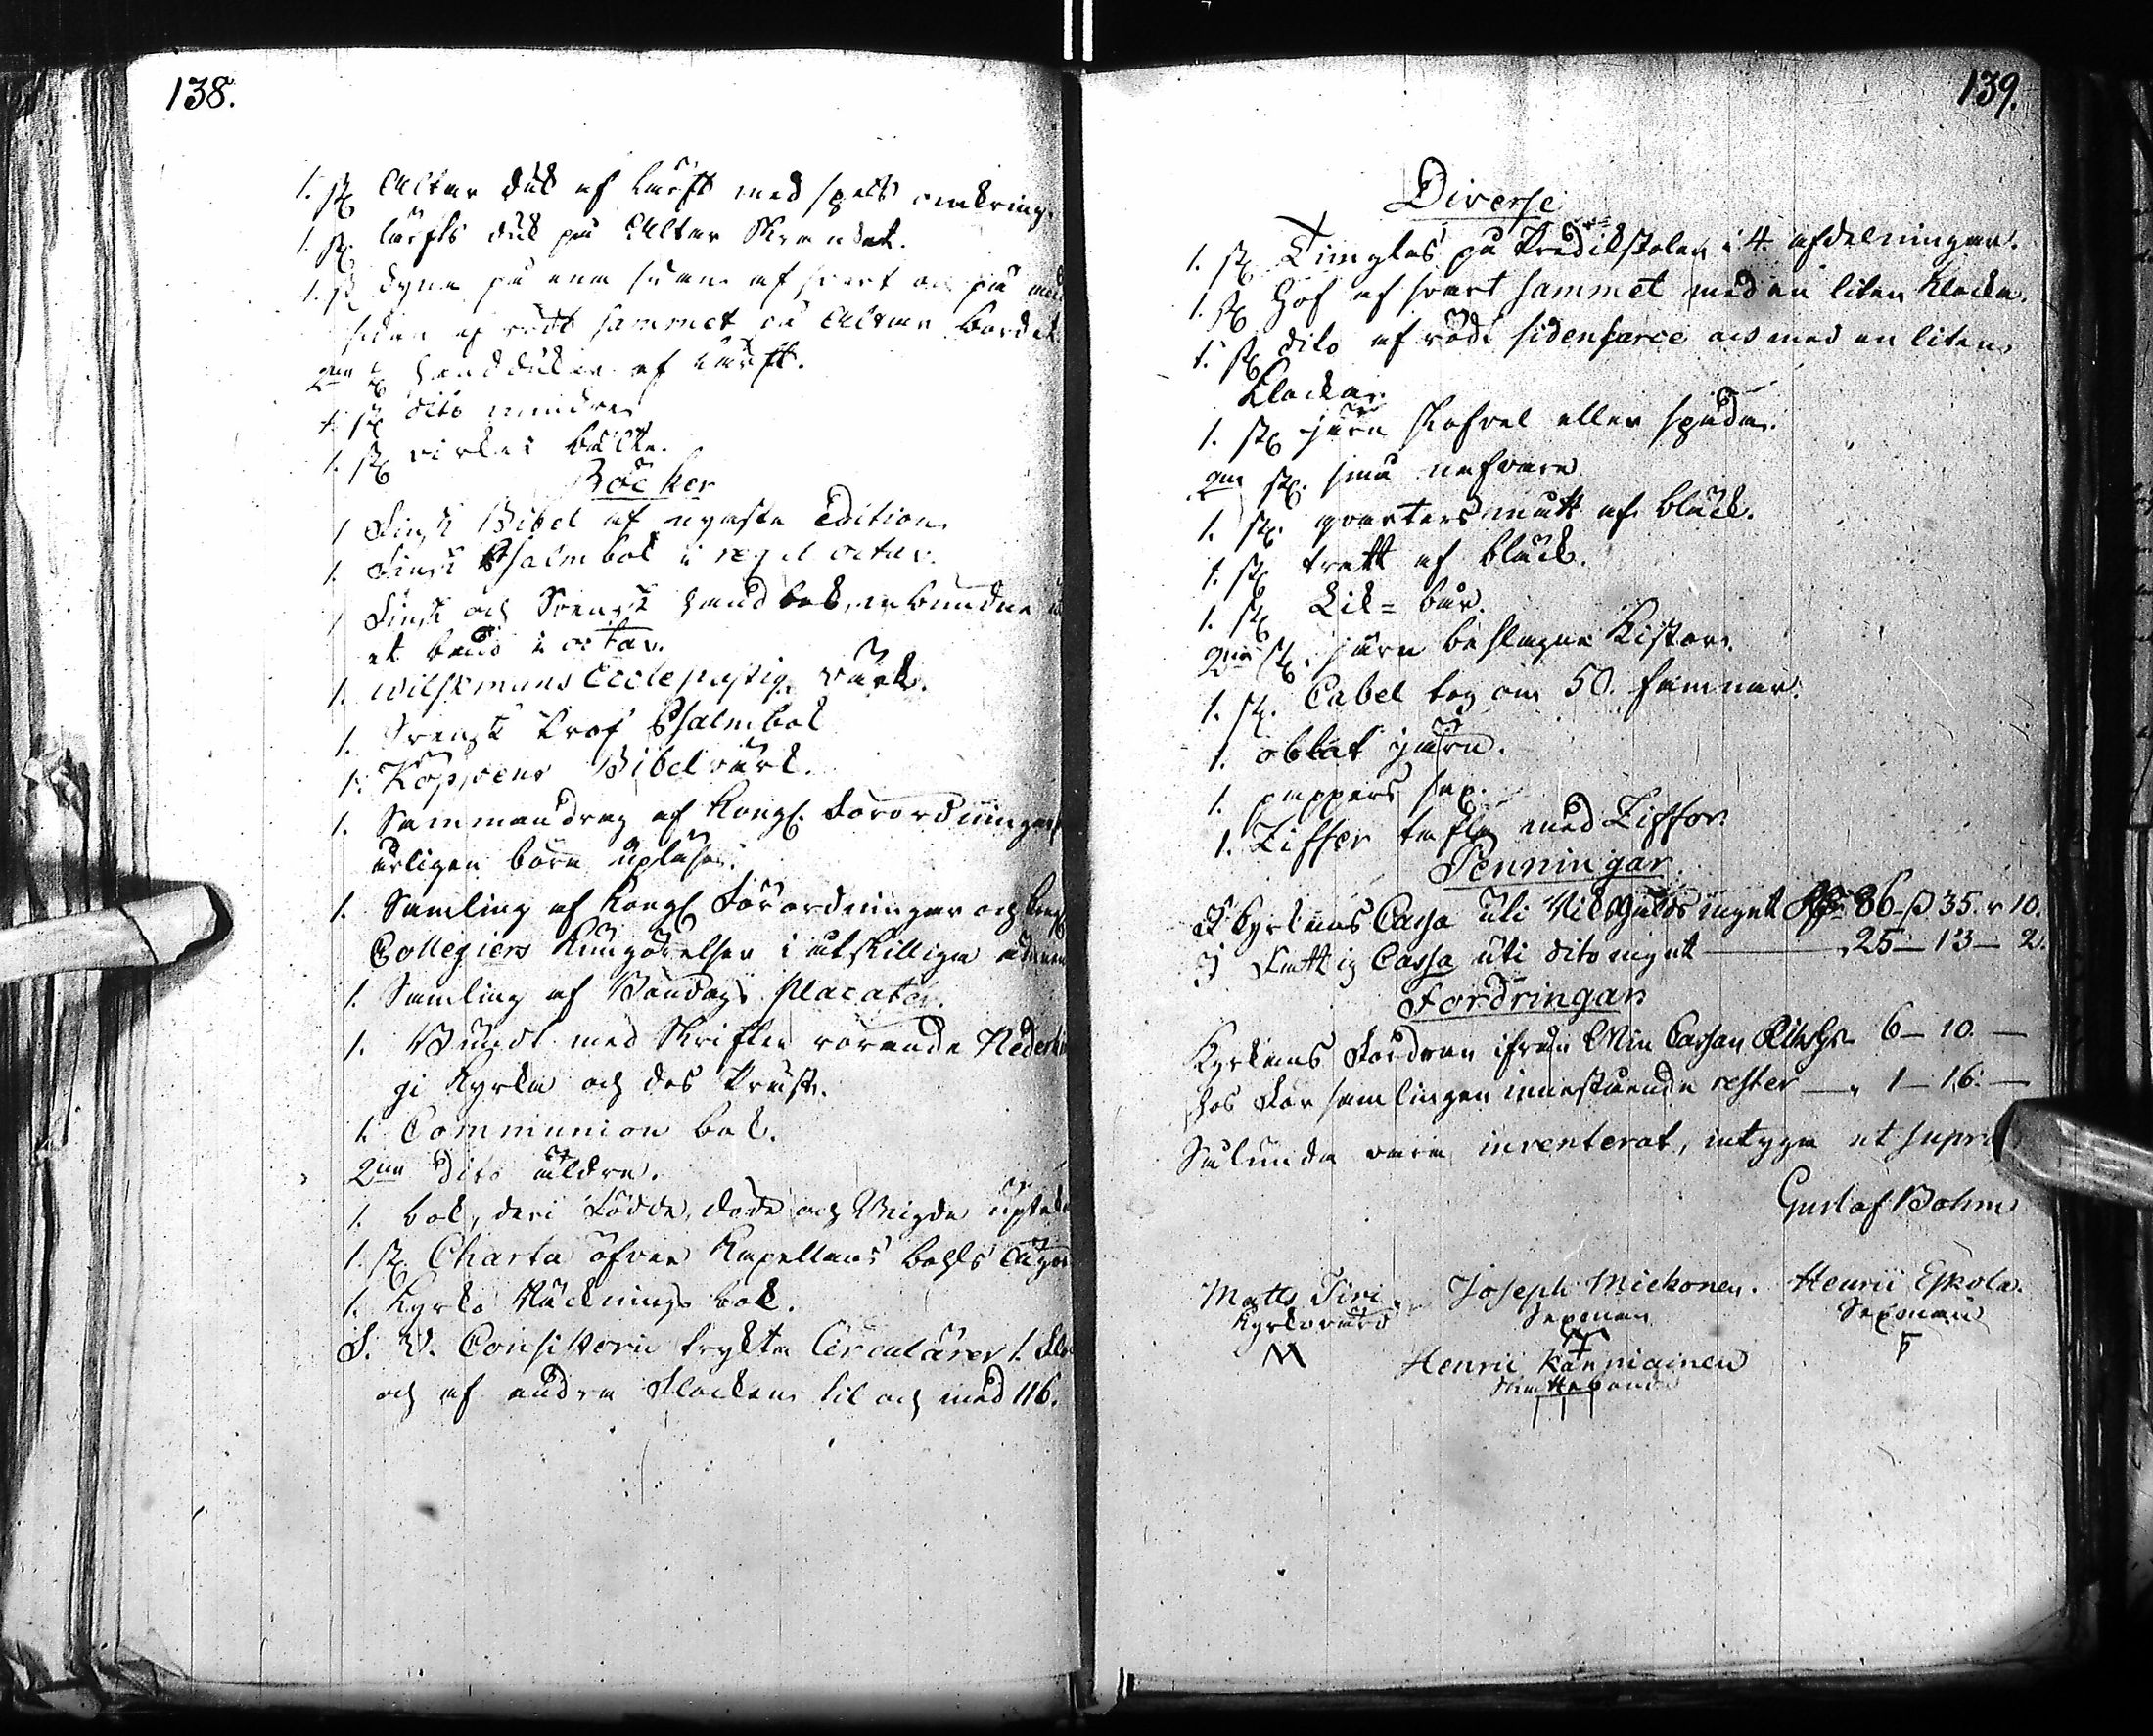 138.
1. st. Altar duk af lärft med spets omkring.
1. st. lärfts duk på Altar Skranket.
1. st. dyna på ena sidan af svart och på
sidan af rödt sammet på Altare bordet
2ne st. handdukar af lärft.
1. st. dito mindre
1. st. virket bälte.
Böcker
1 Finsk Bibel af nyaste Edition
1. Finsk Psalmbok i regal octav.
1 Finsk och Svensk handbok, inbundne
et band i octav.
1. Wilskmans Ecclesiastiqe värk.
1. Svensk Prof Psalmbok
1. Köppens Bibelvärk.
1. Sammandrag af Kongl. Förordningar
årligen böra upläsas.
1. Samling af Kongl. Förordningar och Kongl.
Collegiers Kungörelser i åtskillige
1. Samling af Böndags Placater.
1. Bundt med Skrifter rörande
gi Kyrka och des Präster.
1. Communion bok.
2ne dito äldre.
1. bok, deri Födde, döde och Vigde
1. st. Charta öfver Kapellans bohls ägor
1. Kyrko Räcknings bok.
S. V. Consistorii trykta Circulärer 1.
och af andra Flocken til och med 116.
139.
Diverse
1. st. Timglas på Predikstolen i 4 afdelningar.
1. st. Hof af svart sammet med en liten Klocka.
1. st. dito af rödt sidensarce och med en liten
Klocka.
1. st. järn skofvel eller spada.
2ne st. små nafvare
1. st. qvartersmått af bläck.
1. st. tratt af bläck.
1. st. Lik=bår.
2ne st. järn beslagne Kistor.
1. st. Cabel tog om 50. famnar.
1. oblat järn.
1. pappers sax.
1. Ziffer tafla med Ziffror.
Penningar
I Kyrkans Cassa uti Riksgälds mynt 86 ß 35. r 10.
I Fattig Cassa uti dito mynt — 25 — 13 — 2.
Fordringar
Kyrkans Fordran ifrån Win Cassan Riksgs 6 — 10. —
hos Församlingen innestående rester — „ 1 — 16. —
Sålunda vara inventerat, intyga ut supra
Gustaf Bohm
Matts Tiri. Joseph Mickonen. Henric Eskola.
Kyrkovärd Sexman Sexman
Henric Känniainen